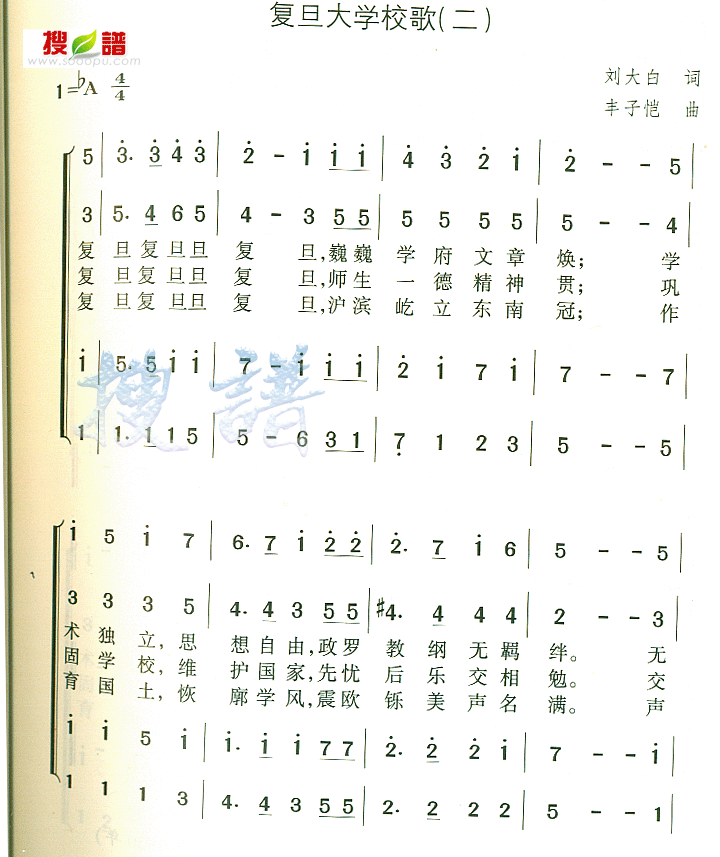 复旦大学校歌(二)
搜譜
www.sooopu.com
1=♭A 4/4
刘大白 词
丰子恺 曲
5 | 3̇. 3̇ 4̇ 3̇ | 2̇ - i i i | 4̇ 3̇ 2̇ i | 2̇ - - 5 |
3 | 5. 4 6 5 | 4 - 3 5 5 | 5 5 5 5 | 5 - - 4 |
复 旦复旦旦 复 旦,巍巍 学府文章焕; 学
复 旦复旦旦 复 旦,师生 一德精神贯; 巩
复 旦复旦旦 复 旦,沪滨 屹立东南冠; 作
i | 5. 5 i i | 7 - i i i | 2̇ i 7 i | 7 - - 7 |
1 | 1. 1 1 5 | 5 - 6 3 1 | 7̣ 1 2 3 | 5 - - 5 |
搜譜
i 5 i 7 | 6. 7 i 2̇ 2̇ | 2̇. 7 i 6 | 5 - - 5 |
3 3 3 5 | 4. 4 3 5 5 | #4. 4 4 4 | 2 - - 3 |
术独立,思 想自由,政罗 教纲无羁绊。 无
固学校,维 护国家,先忧 后乐交相勉。 交
育国土,恢 廓学风,震欧 铄美声名满。 声
i i 5 i | i. i i 7 7 | 2̇. 2̇ 2̇ i | 7 - - i |
1 1 1 3 | 4. 4 3 5 5 | 2. 2 2 2 | 5 - - 1 |